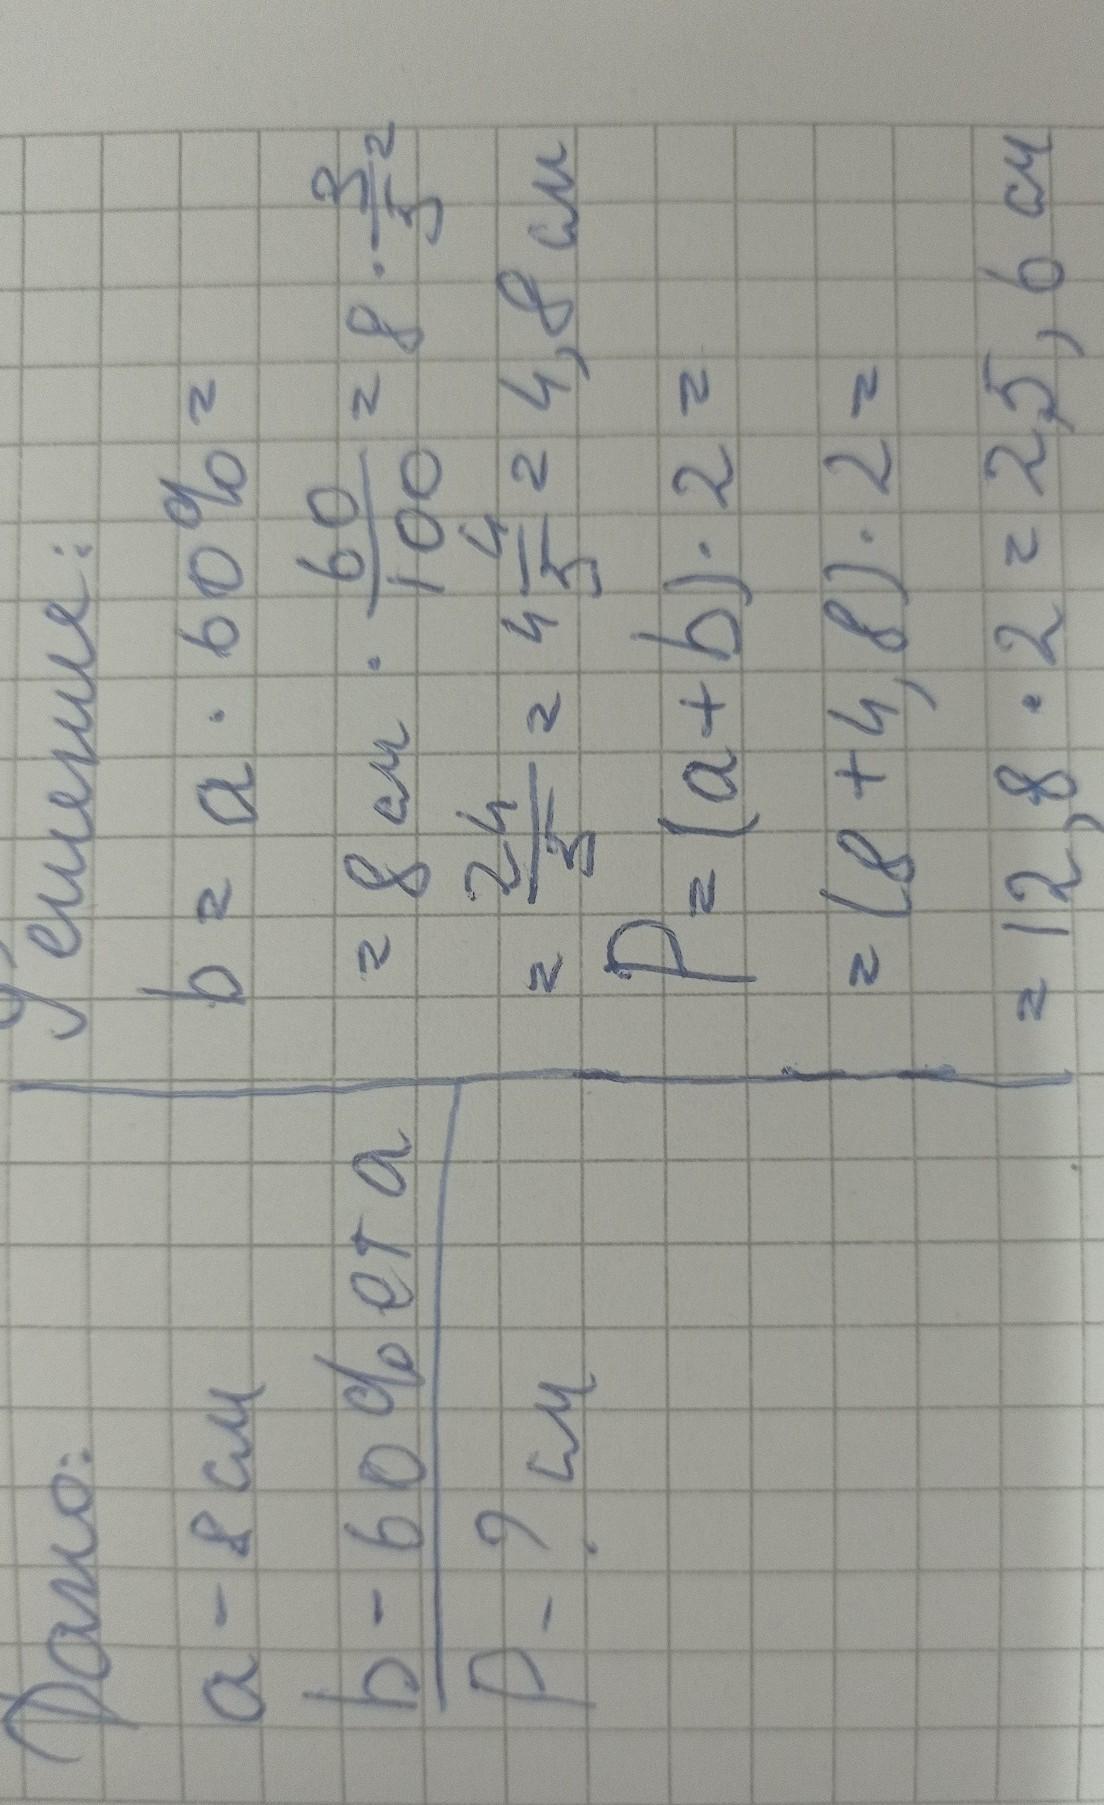 Дано:
a - 8 см
b - 60% от a
P - ? см
Решение:
b = a · 60% =
= 8 см · 60/100 = 8 · 3/5 =
= 24/5 = 4 4/5 = 4,8 см
P = (a + b) · 2 =
= (8 + 4,8) · 2 =
= 12,8 · 2 = 25,6 см